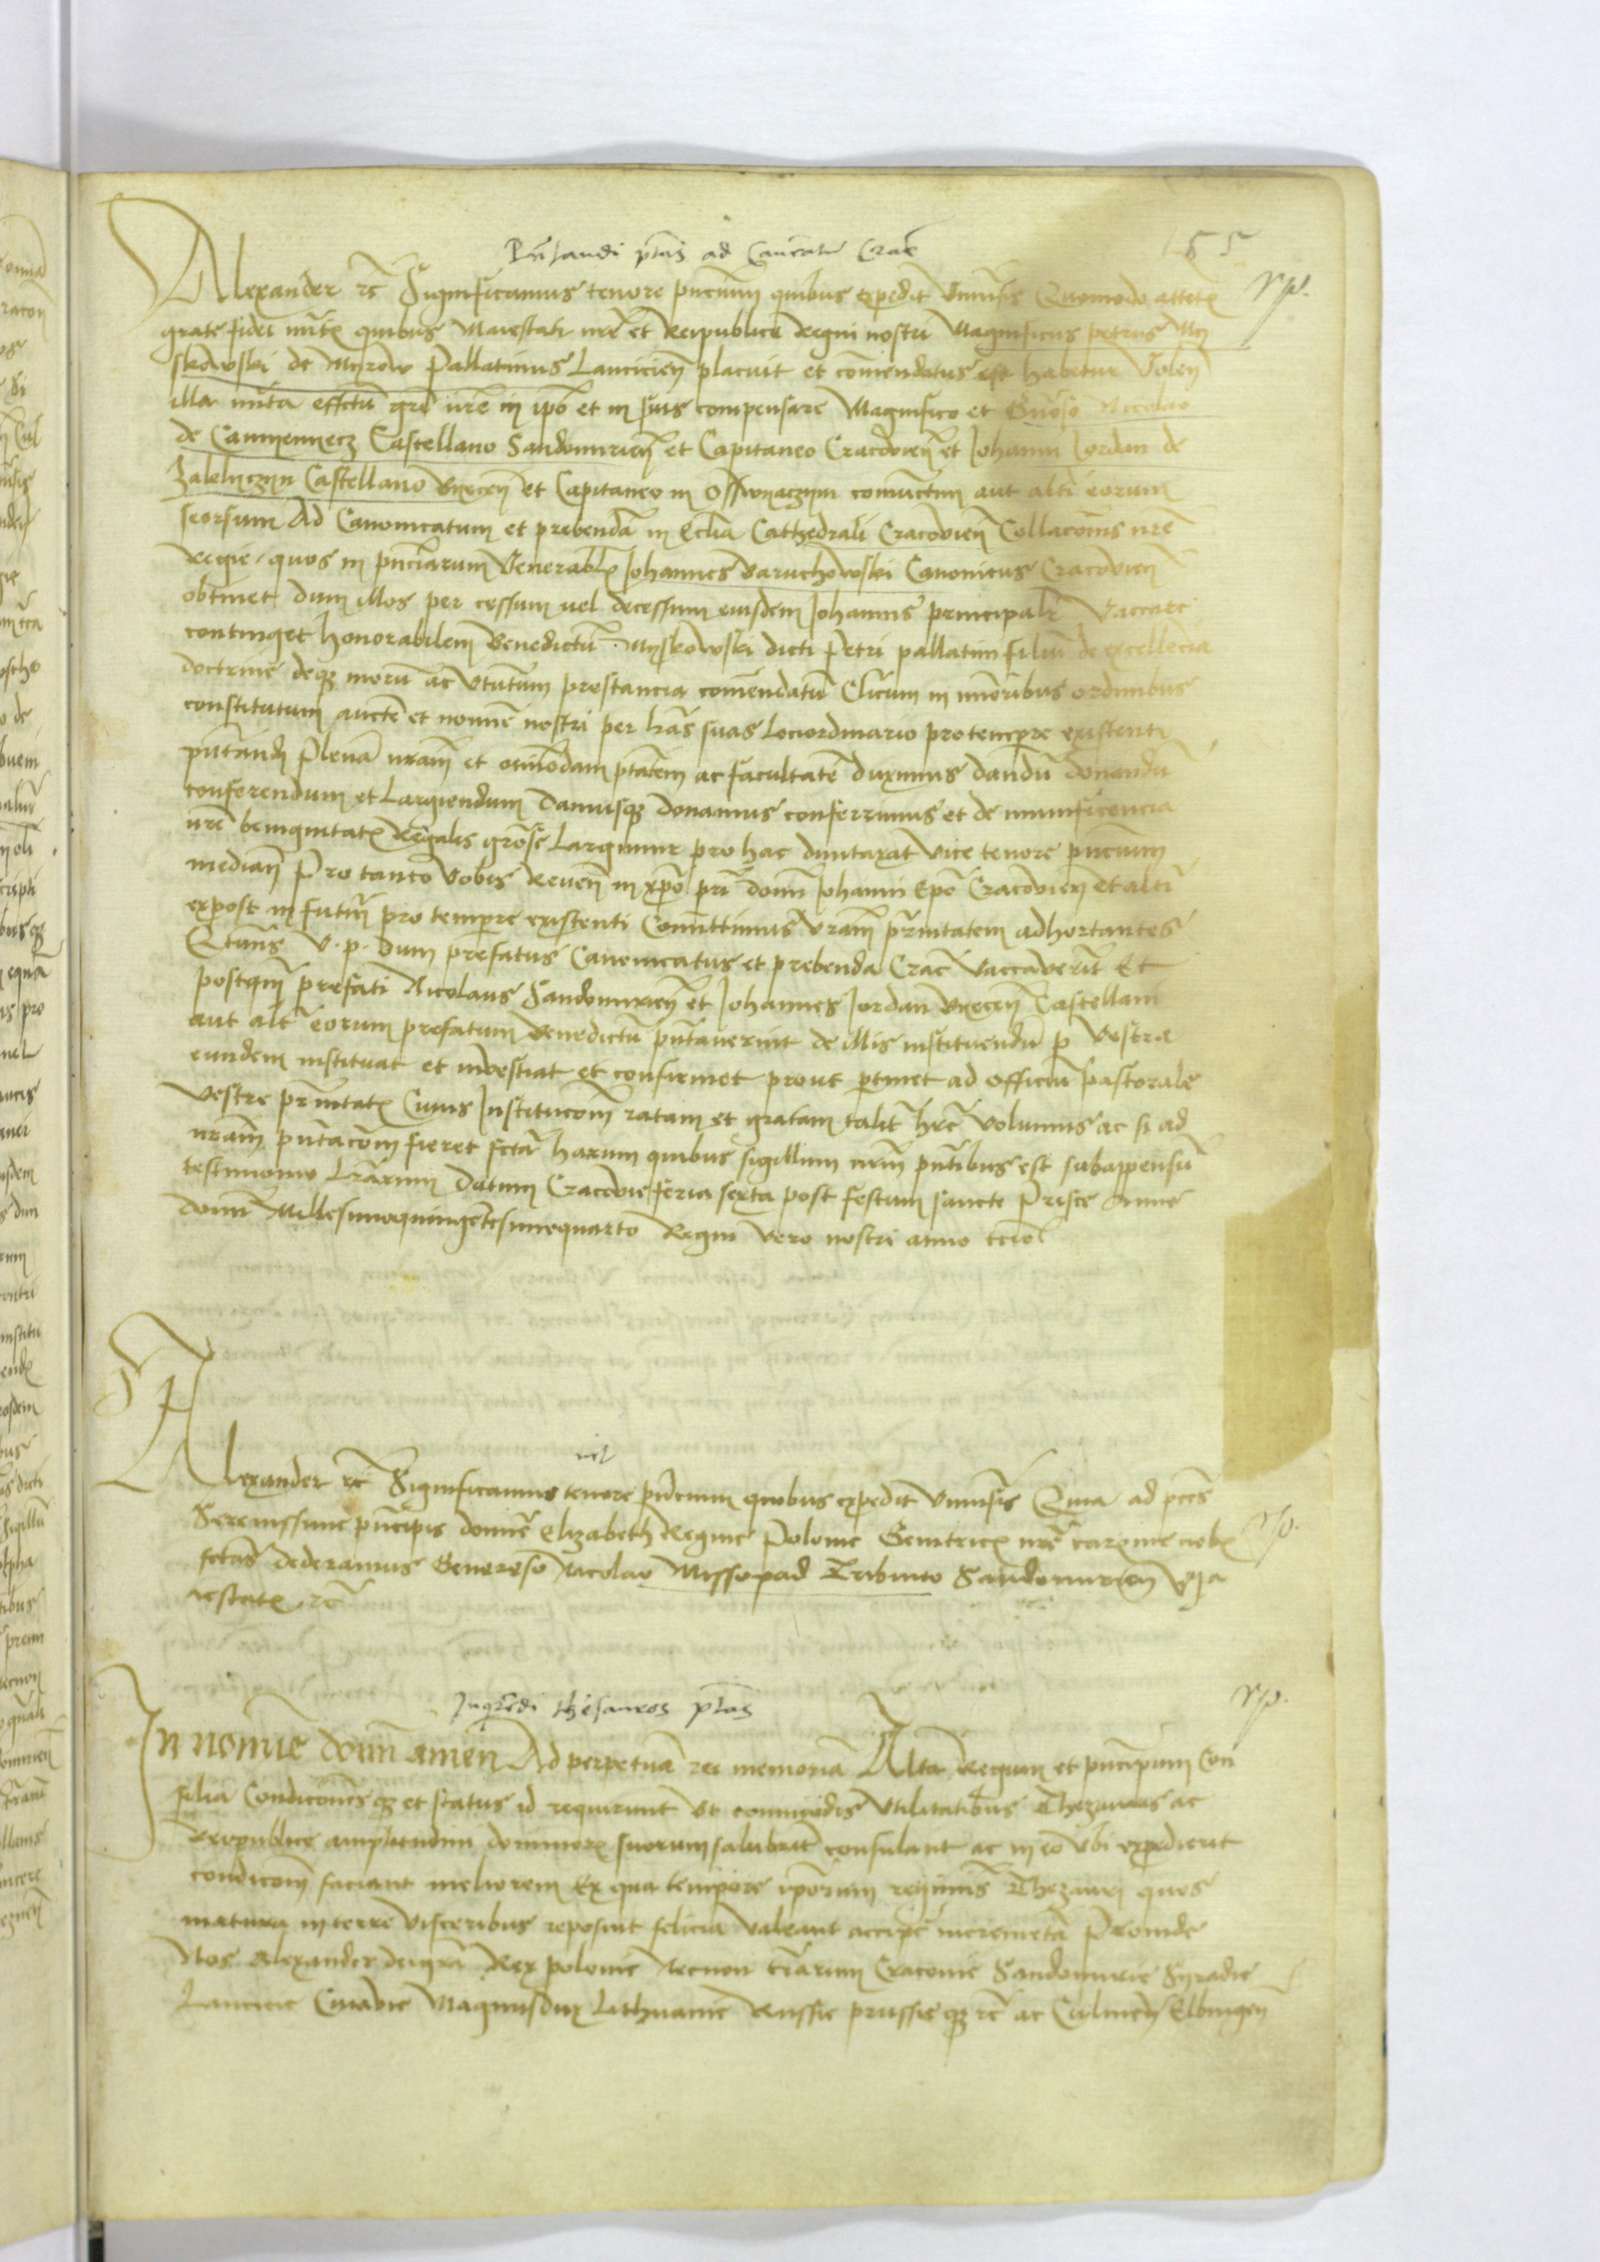 Pn̄tandi ptas ad Canicatū Crac̄
55
Alexander rc̄ Significamus tenore pn̄cium quibus expedit vniuersis Quomodo attētis
grate fidei meritis quibus Maiestati nr̄e et Reipublice Regni nostri Magnificus petrus My
skowski de Myrow Pallatinus Lanciciēn placuit et com̄endatus est habetur Volen̄
illa mīta effectū gr̄e nr̄e in ip̄o et in suis compensare Magnifico et Gn̄oso Nicolao
de Cammenecz Castellano Sandomirien̄ et Capitaneo Cracovien̄ et Johanni Jordan de
Zaklyczyn Castellano Byecen̄ et Capitaneo in Osswyaczym coniunctim aut altī eorum
seorsum Ad Canonicatum et prebendā in Ecl̄ia Cathedrali Cracovien̄ Collacōnis nr̄e
Regie quos in pn̄ciarum Venerabilis Johannes Baruchowski Canonicus Cracovien̄
obtinet dum illos per cessum uel decessum eiusdem Johannis principalr̄ Vaccare
continget honorabilem Benedictū Myskowski dicti Petri pallatini filiū de excellēcia
doctrine deq̄ morū ac v̄tutum prestancia com̄endatū Clīcum in minoribus ordinibus
constitutum auctē et noīne nostri per l̄ras suas Lociordinario protempore existenti
pn̄tandi Plenā nr̄am et om̄imodam ptātem ac facultatē duximus dandū donandū
conferendum et Largiendum Damusq̄ donamus conferrimus et de munificencia
nr̄e benignitatis Regalis grōse Largimur pro hac duntaxat vice tenore pn̄cium
median̄ Pro tanto vobis Reuen̄ in xp̄o pr̄i domī Johanni Ep̄o Cracovien̄ et altī
expost in futur̄ pro tempore existenti Comittimus Vr̄am pr̄nitatem adhortantes
Q̄tinus V. p. dum prefatus Canonicatus et prebenda Crac̄ Vaccaverīt Et
postq̄m prefati Nicolaus Sandomirien̄ et Johannes Jordan Byecen̄ Castellani
aut altr̄ eorum prefatum Benedictū pn̄taverint de illis instituendū p Vestra
eundem instituat et investiat et confirmet prout ptinet ad officiū pastorale
Vestre pr̄nitatis Cuius Institucōm ratam et gratam talit̄ hr̄e volumus ac si ad
nr̄am pn̄tacōm fieret fctā harum quibus sigillum nr̄m pn̄tibus est subappensū
testimonio Lr̄arum Datum Cracovie feria sexta post festum sancte Prisce Anno
domī Millesimoquingētesimoquarto Regni vero nostri anno tc̄io
Alexander rc̄ Significamus tenore pn̄cium quobus expedit vniuersis Quia ad pc̄es
Serenissime pn̄cipis domīe Elizabeth Regine Polonie Genitricis nr̄e carissime nobis
fctas dederamus Generoso Nicolao Missopad Tribuno Sandomirien̄
In nomīe domī amen Ad perpetuā rei memoriā Alta Regum et pn̄cipum Con
silia Condicōnes q̄ et status id requirunt vt commodis vtilitatibus Thezauros ac
Reipublice amplitudini dominorū suorum salubriter consulant ac in eo vbi expedierit
condicōm faciant meliorem Ex qua tempore ip̄orum regiminis Thezauri quos
natura in terre visceribus reposuit felicia valeant accipē incremētā Proinde
Nos Alexander dei gr̄a Rex polonie Necnon tr̄arum Cracovie Sandomirie Syradie
Lancicie Cuiavie Magnusdux Lithuanie Russie prussie q̄ rc̄ ac Culmen̄ Elbingen̄
Ingrēdi thesauros ptas